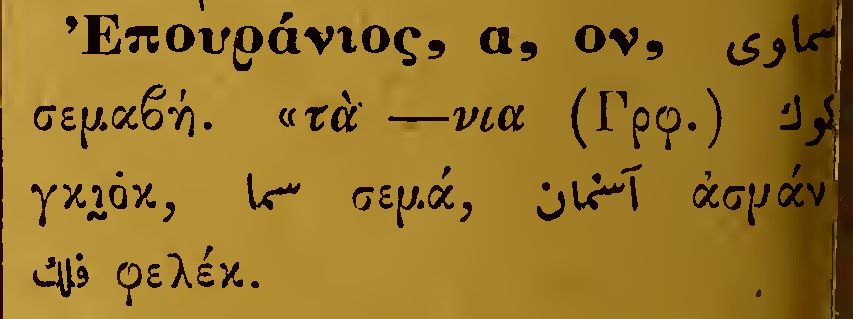 Ἐπουράνιος, α, ον, سماوی
σεμαβή. «τὰ —νια (Γρφ.) كوك
γκιὸκ, سما σεμά, آسمان ἀσμάν
فلك φελέκ.